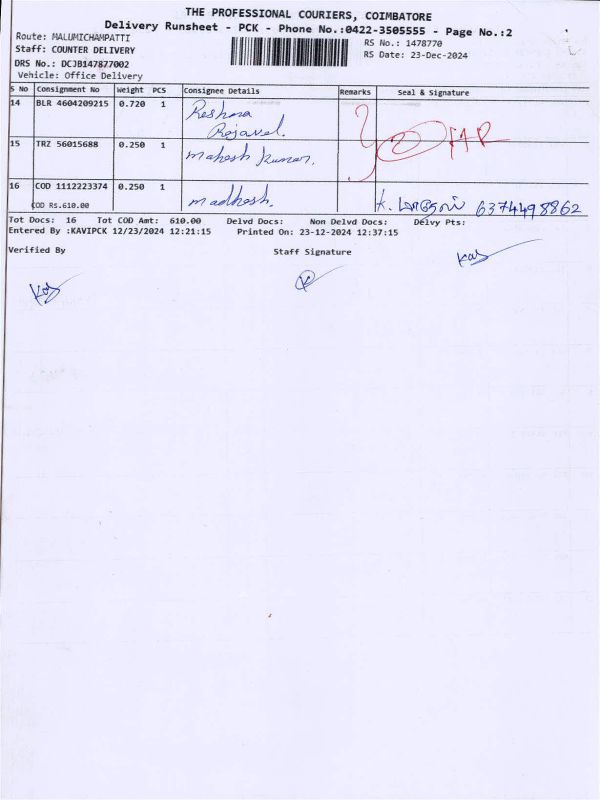 THE PROFESSIONAL COURIERS, COIMBATORE
Delivery Runsheet - PCK - Phone No.:0422-3505555 - Page No.:2
Route: MALUMICHAMPATTI
Staff: COUNTER DELIVERY
DRS No.: DCJB147877002
Vehicle: Office Delivery
RS No.: 1478770
RS Date: 23-Dec-2024
S No Consignment No Weight PCS Consignee Details Remarks Seal & Signature
14 BLR 4604209215 0.720 1 Reshma
Rajavel.
15 TRZ 56015688 0.250 1 Mahesh Kumar.
16 COD 1112223374 0.250 1 madhesh. 6374498862
COD RS.610.00
Tot Docs: 16 Tot COD Amt: 610.00 Delvd Docs: Non Delvd Docs: Delvy Pts:
Entered By :KAVIPCK 12/23/2024 12:21:15 Printed On: 23-12-2024 12:37:15
Verified By Staff Signature